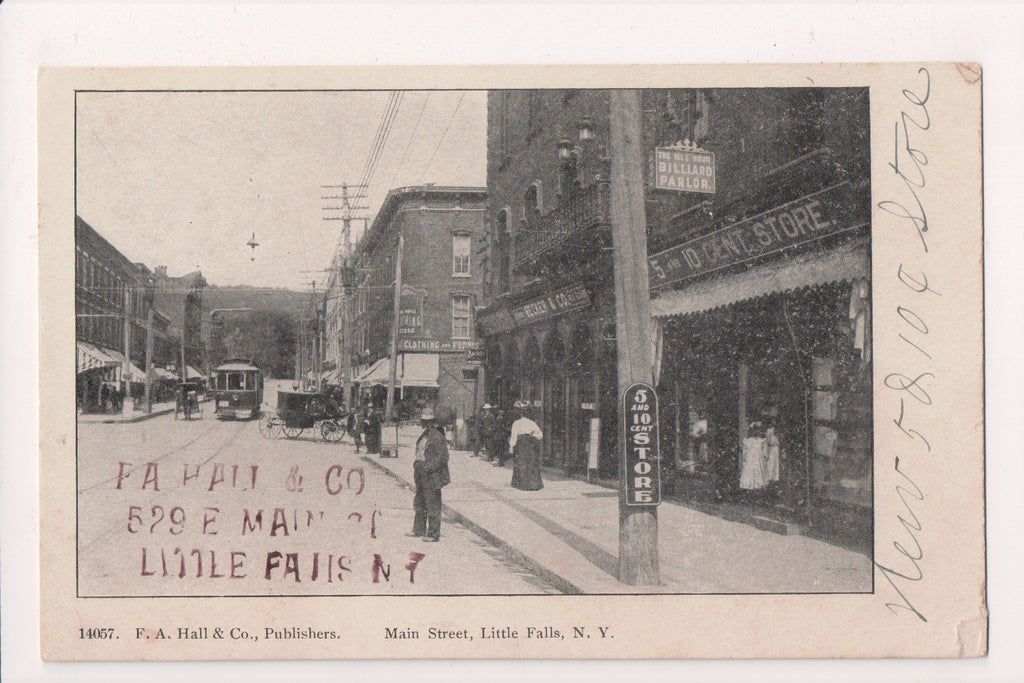 BILLIARD
PARLOR.
5 AND 10 CENT STORE.
& CO
CLOTHING AND
5
AND
10
CENT
STORE
FA HALL & CO
529 E MAIN ST
LITTLE FALLS N Y
14057. F. A. Hall & Co., Publishers. Main Street, Little Falls, N. Y.
New 5 & 10 ¢ Store